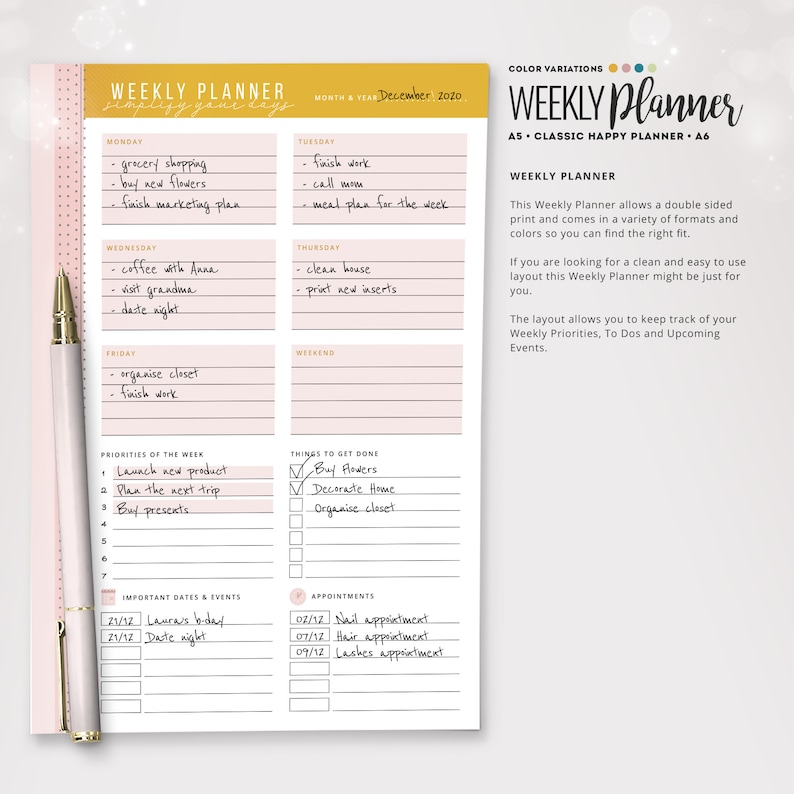 WEEKLY PLANNER
simplify your days
MONTH & YEAR December 2020
MONDAY
- grocery shopping
- buy new flowers
- finish marketing plan
TUESDAY
- finish work
- call mom
- meal plan for the week
WEDNESDAY
- coffee with Anna
- visit grandma
- date night
THURSDAY
- clean house
- print new inserts
FRIDAY
- organise closet
- finish work
WEEKEND
PRIORITIES OF THE WEEK
1 Launch new product
2 Plan the next trip
3 Buy presents
4
5
6
7
THINGS TO GET DONE
Buy Flowers
Decorate Home
Organise closet
IMPORTANT DATES & EVENTS
21/12 Laura's b-day
21/12 Date night
APPOINTMENTS
02/12 Nail appointment
07/12 Hair appointment
09/12 Lashes appointment
COLOR VARIATIONS
WEEKLY Planner
A5 • CLASSIC HAPPY PLANNER • A6
WEEKLY PLANNER
This Weekly Planner allows a double sided
print and comes in a variety of formats and
colors so you can find the right fit.
If you are looking for a clean and easy to use
layout this Weekly Planner might be just for
you.
The layout allows you to keep track of your
Weekly Priorities, To Dos and Upcoming
Events.